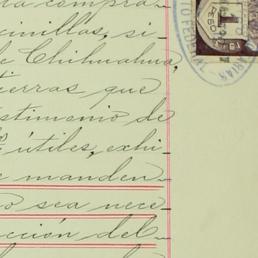 la compra
cinillas, si
e Chihuahua,
tierras que
estimonio de
s útiles, exhi
e manden
o sea nece
cción del